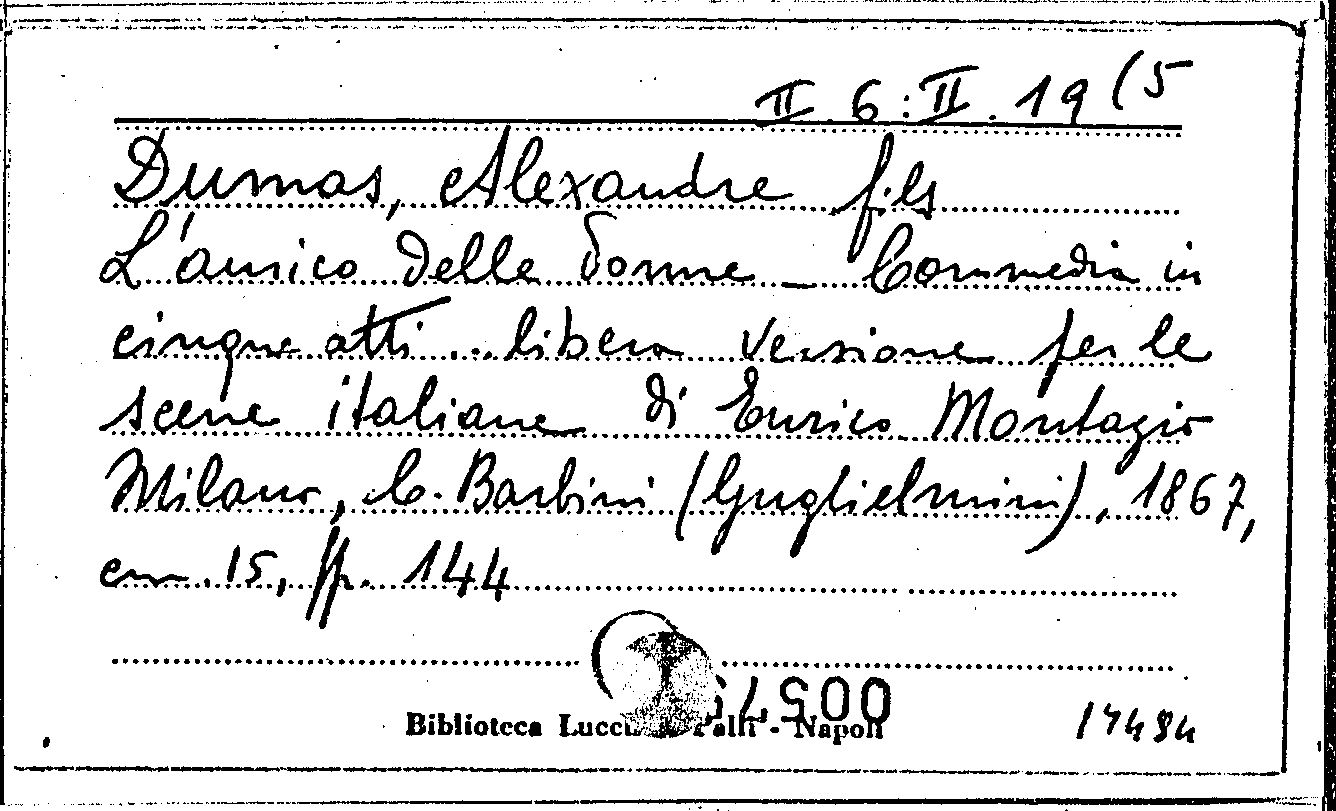 II. 6: II. 19 (5
Dumas, Alexandre fils
L'amico delle donne _ Commedia in
cinque atti ... libera versione per le
scene italiane di Enrico Montazio
Milano, C. Barbini (Guglielmini), 1867,
cm. 15, pp. 144
Biblioteca - Napoli
17484